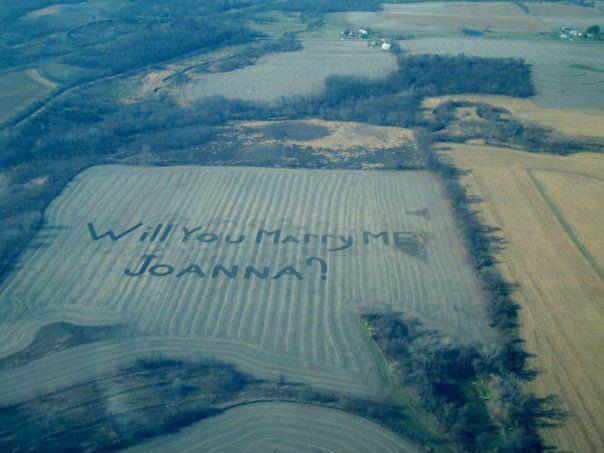 Will You Marry ME
JoAnnA?